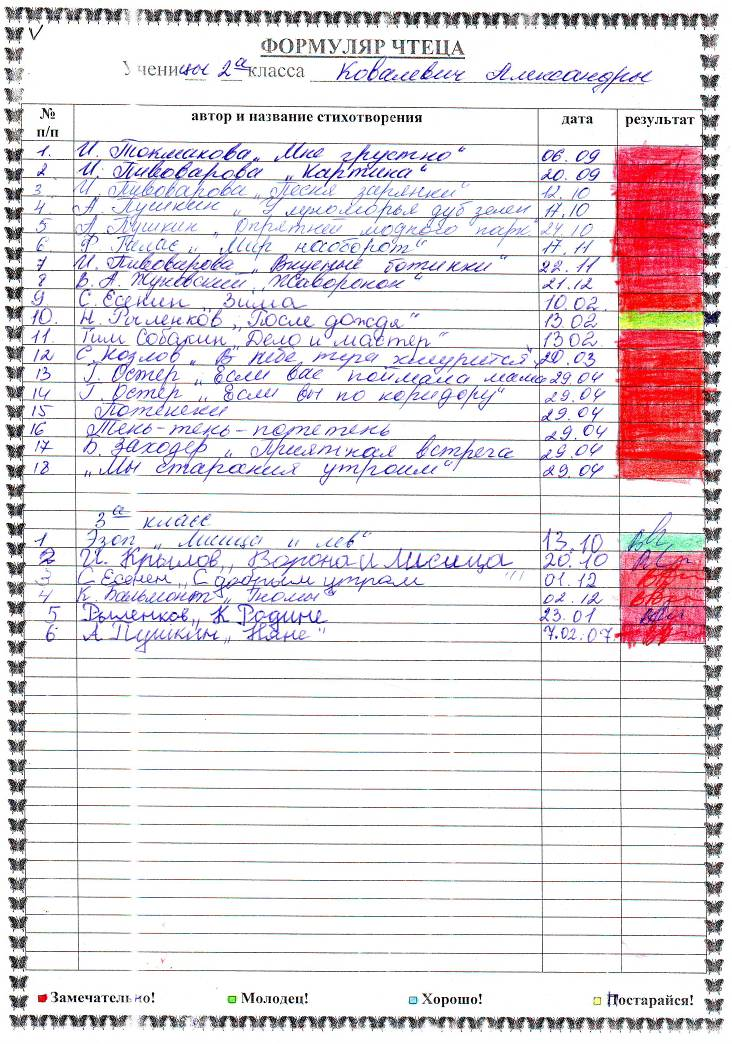 ФОРМУЛЯР ЧТЕЦА
Ученицы 2а класса Ковалевич Александры
№ п/п автор и название стихотворения дата результат
1. И. Токмакова „Мне грустно“ 06.09
2 И. Пивоварова „Картина“ 20.09
3 И. Пивоварова „Песня зарянки“ 12.10
4 А. Пушкин „У лукоморья дуб зелен 17.10
5 А. Пушкин „Опрятней модного парк“ 24.10
6 Ф. Пелас „Мир наоборот“ 17.11
7 И. Пивоварова „Вкусные ботинки“ 22.11
8 В. А. Жуковский „Жаворонок“ 21.12
9 С. Есенин Зима 10.02.
10. Н. Рыленков „После дождя“ 13.02
11. Тим Собакин „Дело и мастер“ 13.02
12 С. Козлов „В небе туча хмурится“ 20.03
13 Г. Остер „Если вас поймала мама 29.04
14 Г. Остер „Если вы по коридору“ 29.04
15 Потешки 29.04
16 Тень-тень-потетень 29.04
17 Б. Заходер „Приятная встреча 29.04
18 „Мы старания утроим“ 29.04
3а класс
1 Эзоп „Лисица и лев“ 13.10
2 И. Крылов „Ворона и Лисица 20.10
3 С Есенен „С добрым утрам “ 01.12
4 К. Бальмонт „Гномы“ 02.12
5 Рыленков „К Родине 23.01
6 А Пушкин „Няне“ 7.02.07
Замечательно! Молодец! Хорошо! Постарайся!